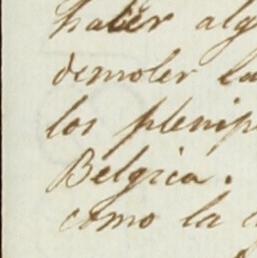 haber alg
demoler la
los plenip
Belgica.
como la